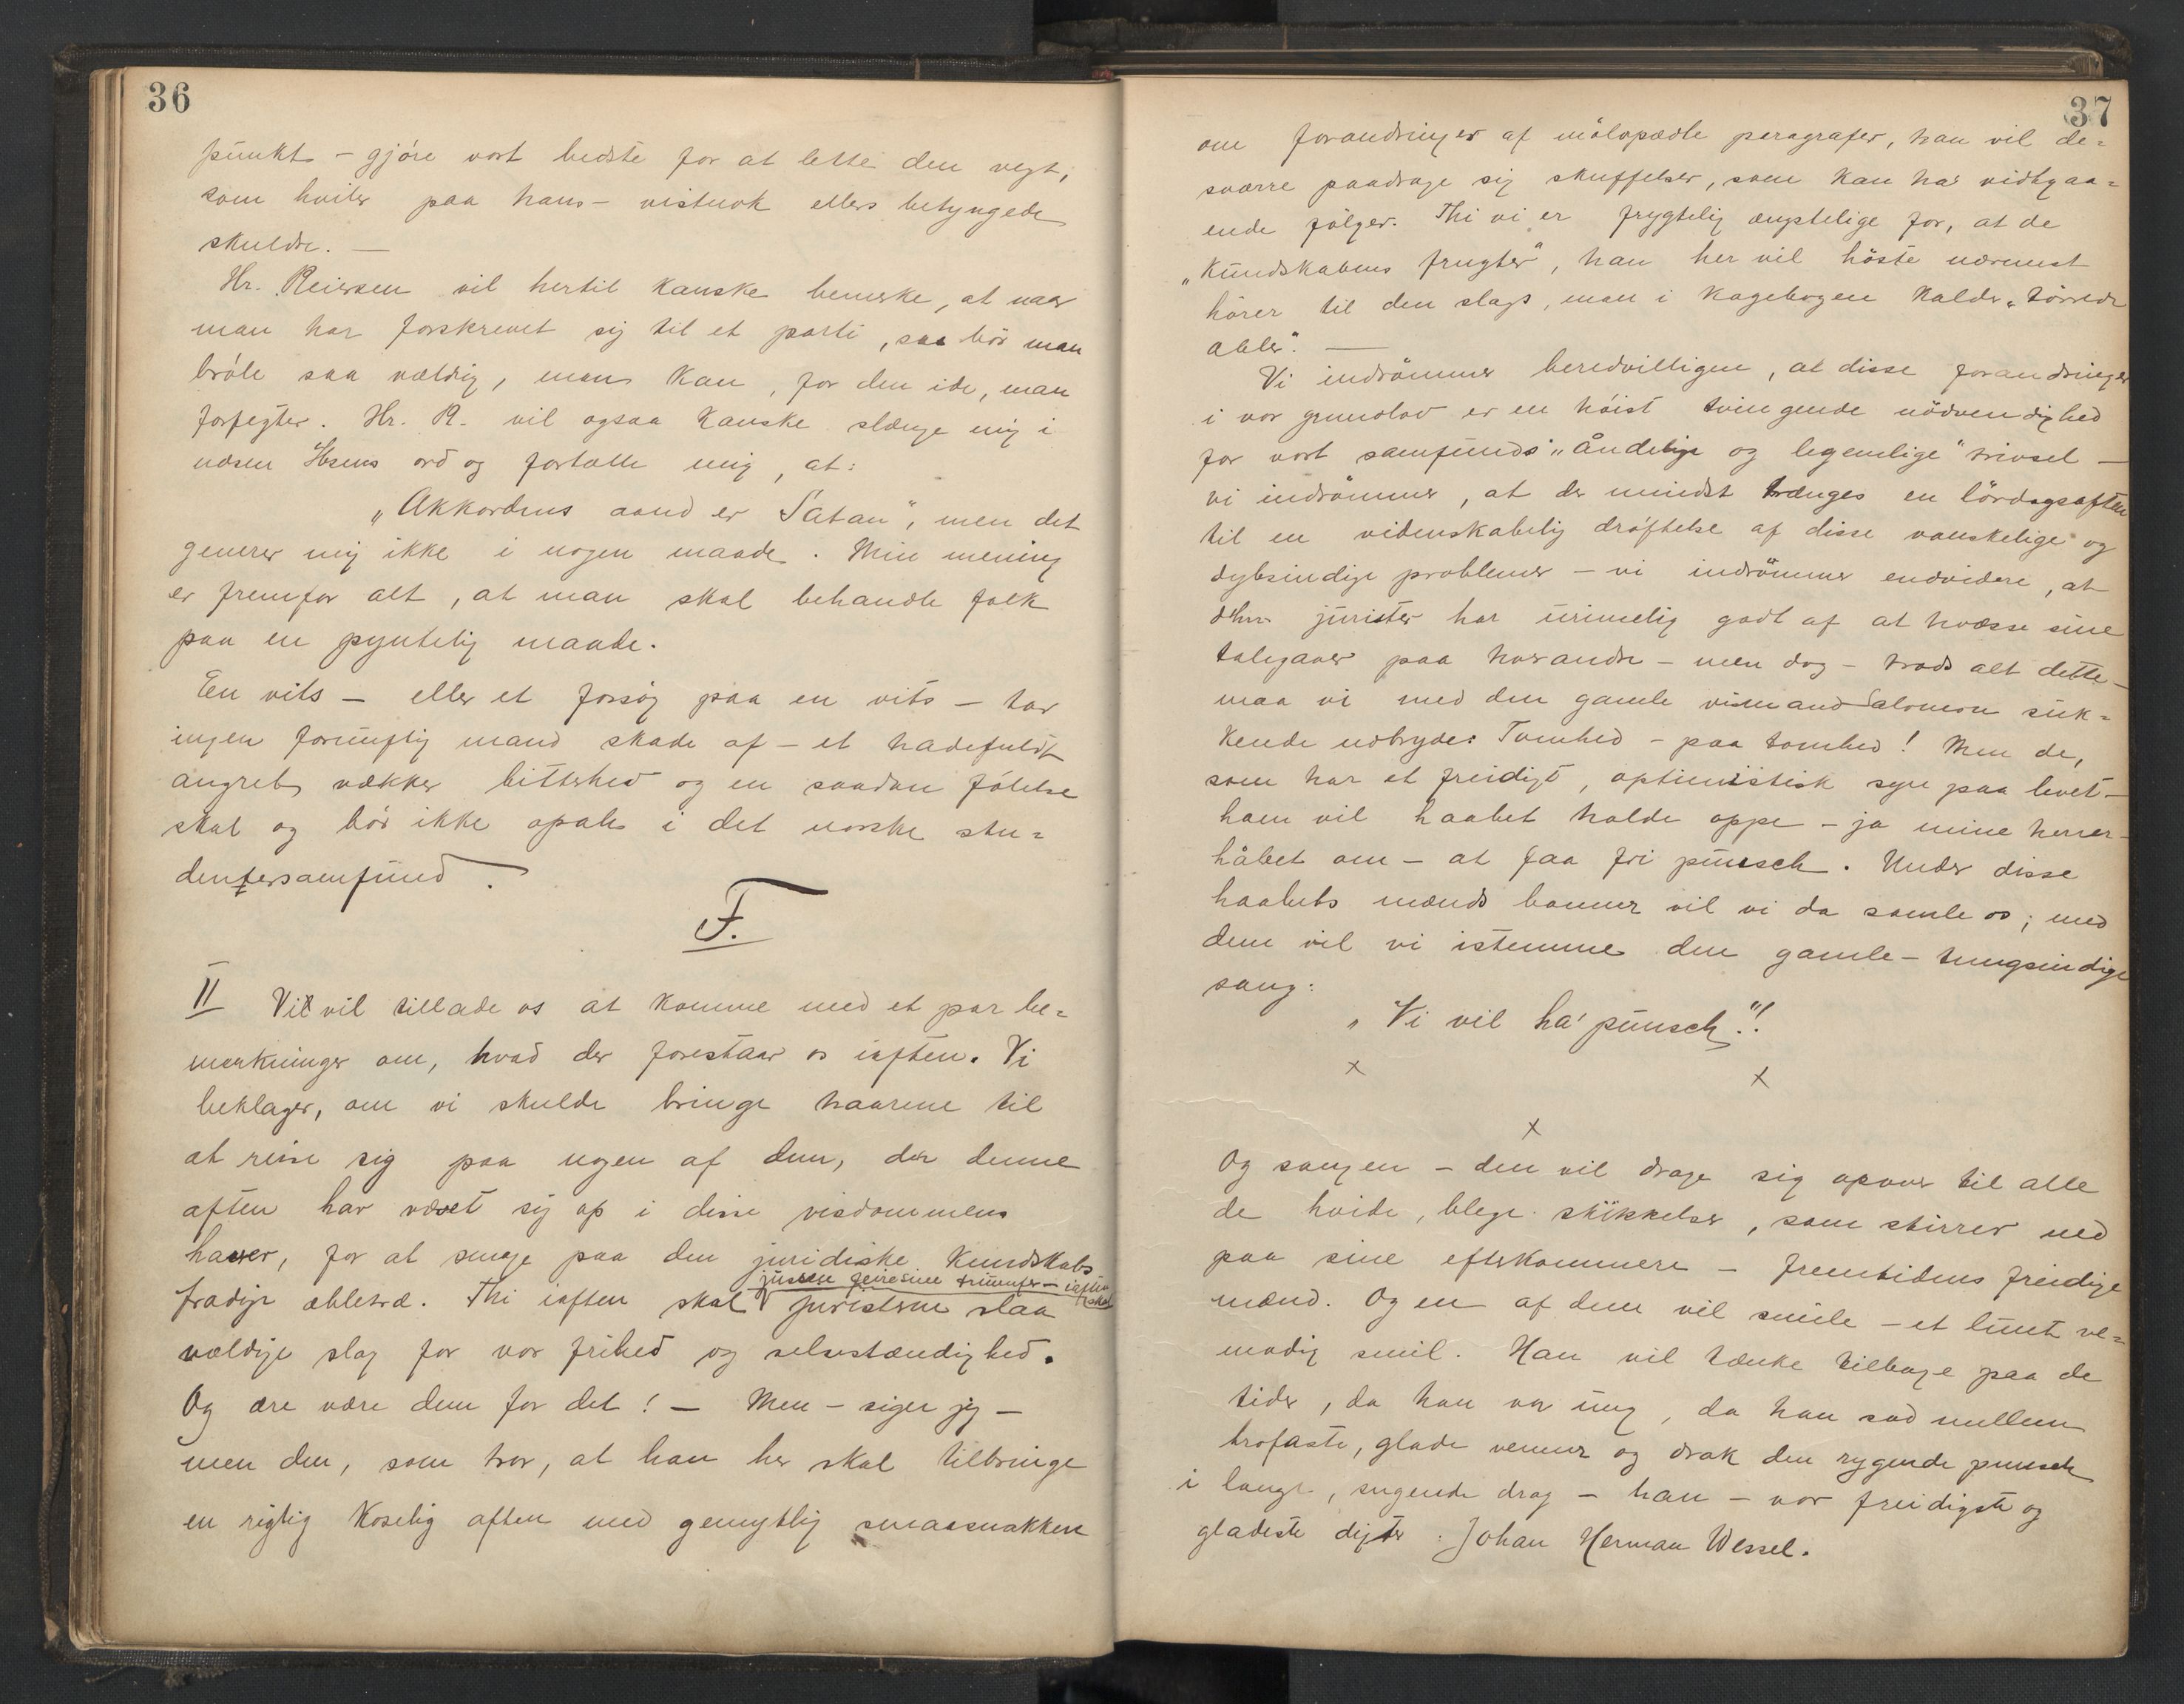 36
punkt – gjøre vort bedste for at lette den vegt,
som hviler paa hans – vistnok ellers betyngede
skuldre. —
Hr. Reiersen vil hertil kanske bemerke, at naar
man har forskrevet sig til et parti, saa bör man
bröle saa vældig, man kan, for den ide, man
forfegter. Hr. R. vil ogsaa kanske slænge mig i
næsen Ibsens ord og fortælle mig, at:
„Akkordens aand er Satan", men det
generer mig ikke i nogen maade. Min mening
er fremfor alt, at man skal behandle folk
paa en pyntelig maade.
En vits – eller et forsög paa en vits – har
ingen fornuftig mand skade af – et hadefuldt
angreb vækker bitterhed og en saadan fölelse
skal og bör ikke opales i det norske stu=
dentersamfund.
F.
II Vi vil tillade os at komme med et par be=
merkninger om, hvad der forestaar os iaften. Vi
beklager, om vi skulde bringe haarene til
at reise sig paa nogen af dem, der denne
aften har vovet sig op i disse visdommens
haver, for at smage paa den juridiske kundskabs
jussen feire sine triumfer – iaften skal
frodige æbletræ. Thi iaften skal juristerne slaa
vældige slag for vor frihed og selvstændighed.
Og ære være dem for det! – Men – siger jeg –
men den, som tror, at han her skal tilbringe
en rigtig koselig aften med gemytlig smaasnakken
37
om forandringer af mölopædte paragrafer, han vil de=
sværre paadrage sig skuffelser, som kan ha' vidtgaa=
ende fölger. Thi vi er frygtelig ængstelige for, at de
„kundskabens frugter", han her vil höste nærmest
hörer til den slags, man i kagebogen kalder „törrede
æbler". —
Vi indrömmer beredvilligen, at disse forandringer
i vor grundlov er en höist tvingende nödvendighed
for vort samfunds „åndelige og legemlige" trivsel –
vi indrömmer, at der mindst trænges en lördagsaften
til en videnskabelig dröftelse af disse vanskelige og
dybsindige problemer – vi indrömmer endvidere, at
dhrr. jurister har urimelig godt af at hvæsse sine
talegaver paa hverandre – men dog – trods alt dette –
maa vi med den gamle vismand Salomon suk=
kende udbryde: Tomhed – paa tomhed! Men de,
som har et freidigt, optimistisk syn paa livet –
ham vil haabet holde oppe – ja mine herrer –
håbet om – at faa fri punsch. Under disse
haabets mænds banner vil vi da samle os; med
dem vil vi istemme den gamle – tungsindige
sang:
„Vi vil ha' punsch"!
x x
x
Og sangen – den vil drage sig opover til alle
de hvide, blege skikkelser, som stirrer ned
paa sine efterkommere – fremtidens freidige
mænd. Og en af dem vil smile – et lunt ve=
modig smil. Han vil tænke tilbage paa de
tider, da han var ung, da han sad mellem
trofaste, glade venner og drak den rygende punsch
i lange, sugende drag – han – vor freidigste og
gladeste digter: Johan Herman Wessel.